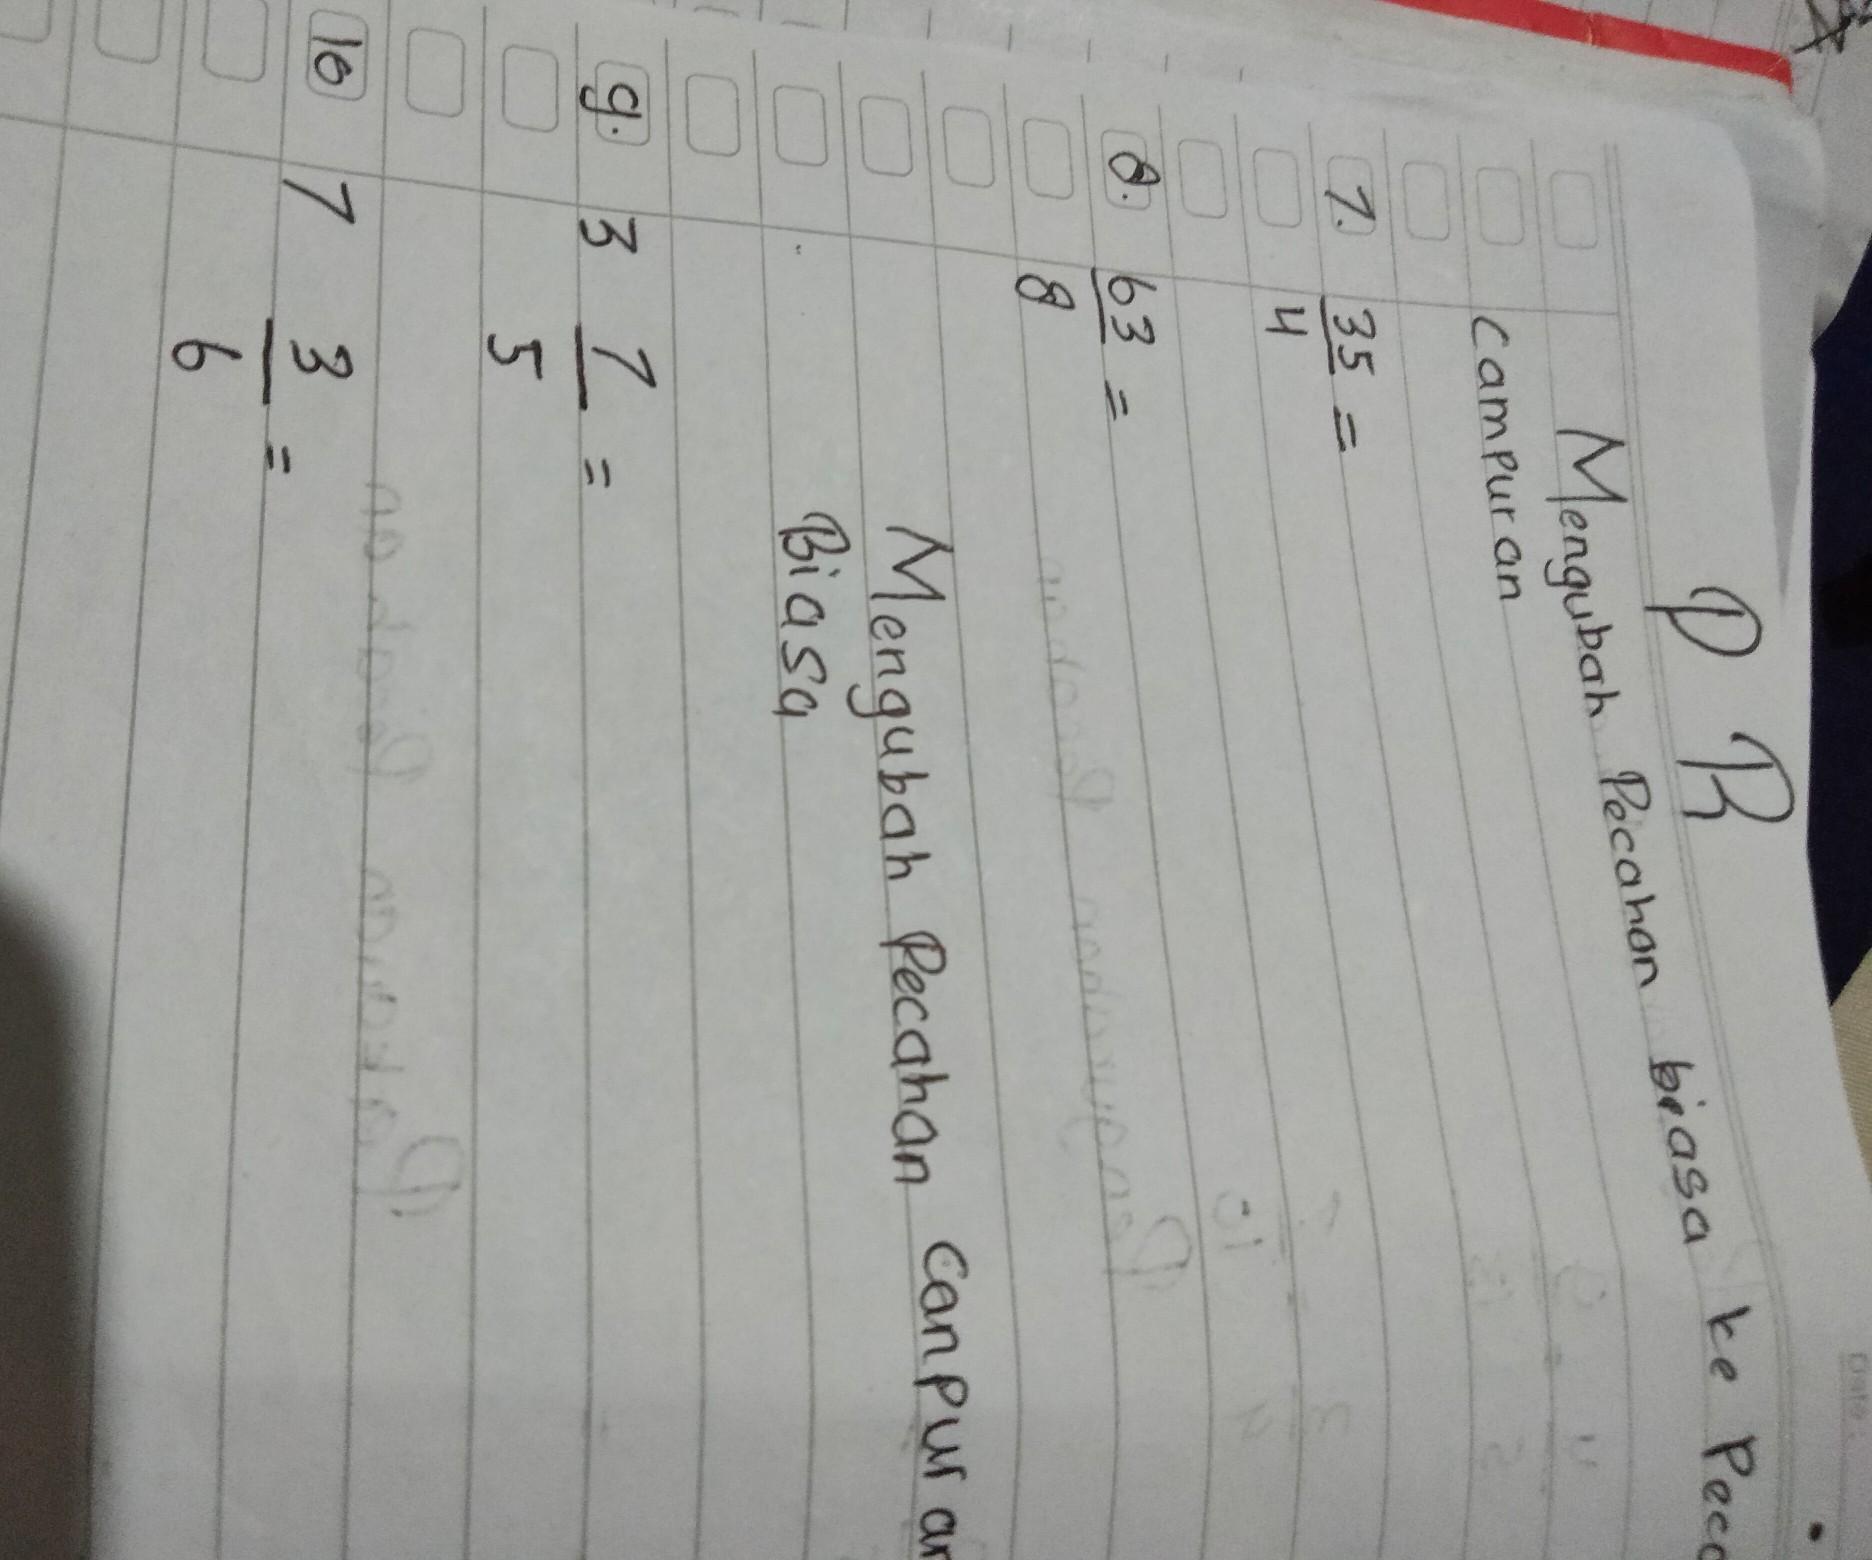 PR
Mengubah Pecahan biasa ke Peca
campuran
7. 35/4 =
8. 63/8 =
Mengubah Pecahan canpuran
Biasa
9. 3 1/5 =
10 7 3/6 =